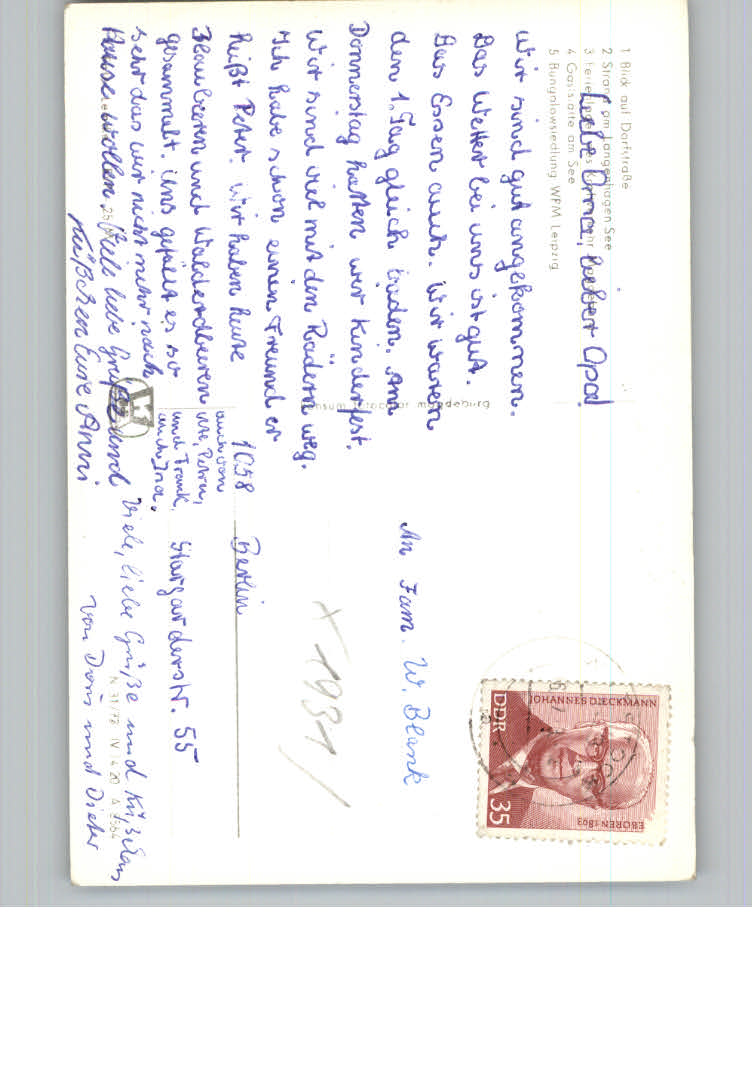 1 Blick auf Dorfstraße
2 Strand am Langenhagen See
3 Ferienlager des
4 Gaststätte am See
5 Bungalowsiedlung WPM Leipzig
Liebe Oma, lieber Opa!
Wir sind gut angekommen.
Das Wetter bei uns ist gut.
Das Essen auch. Wir waren
den 1. Tag gleich baden. Am
Donnerstag hatten wir Kinderfest.
Wir sind viel mit den Rädern weg.
Ich habe schon einen Freund er
heißt Peter. Wir haben heute
Blaubeeren und Walderdbeeren
gesammelt. Uns gefällt es so
sehr das wir nicht mehr nach
Hause wollen. Viele liebe Grüße und
Küßchen Eure Anni
auch von
Petra,
und Frank,
auch Ina.
Viele, liebe Grüße und Küßchen
von Doris und Dieter
Konsum Fotocolor magdeburg
An Fam. W. Blank
X 1981/
1058 Berlin
Stargarderstr. 55
N 31/72 IV 14 20 A 2564
JOHANNES DIECKMANN
GEBOREN 1893
DDR
35